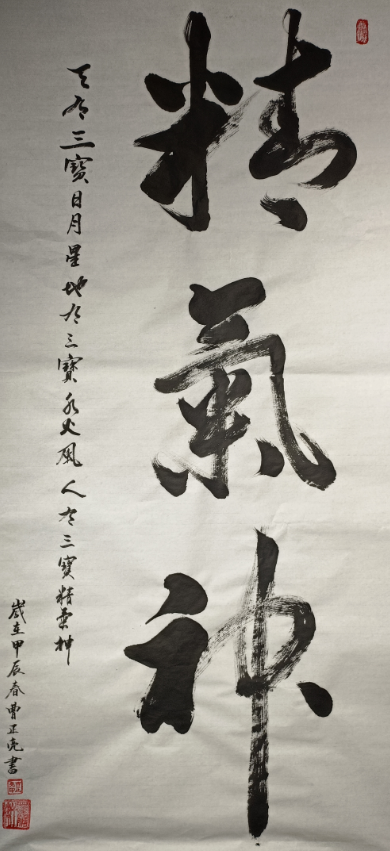 精氣神
天有三寶日月星地有三寶水火風人有三寶精氣神
歲在甲辰春曹正亮書